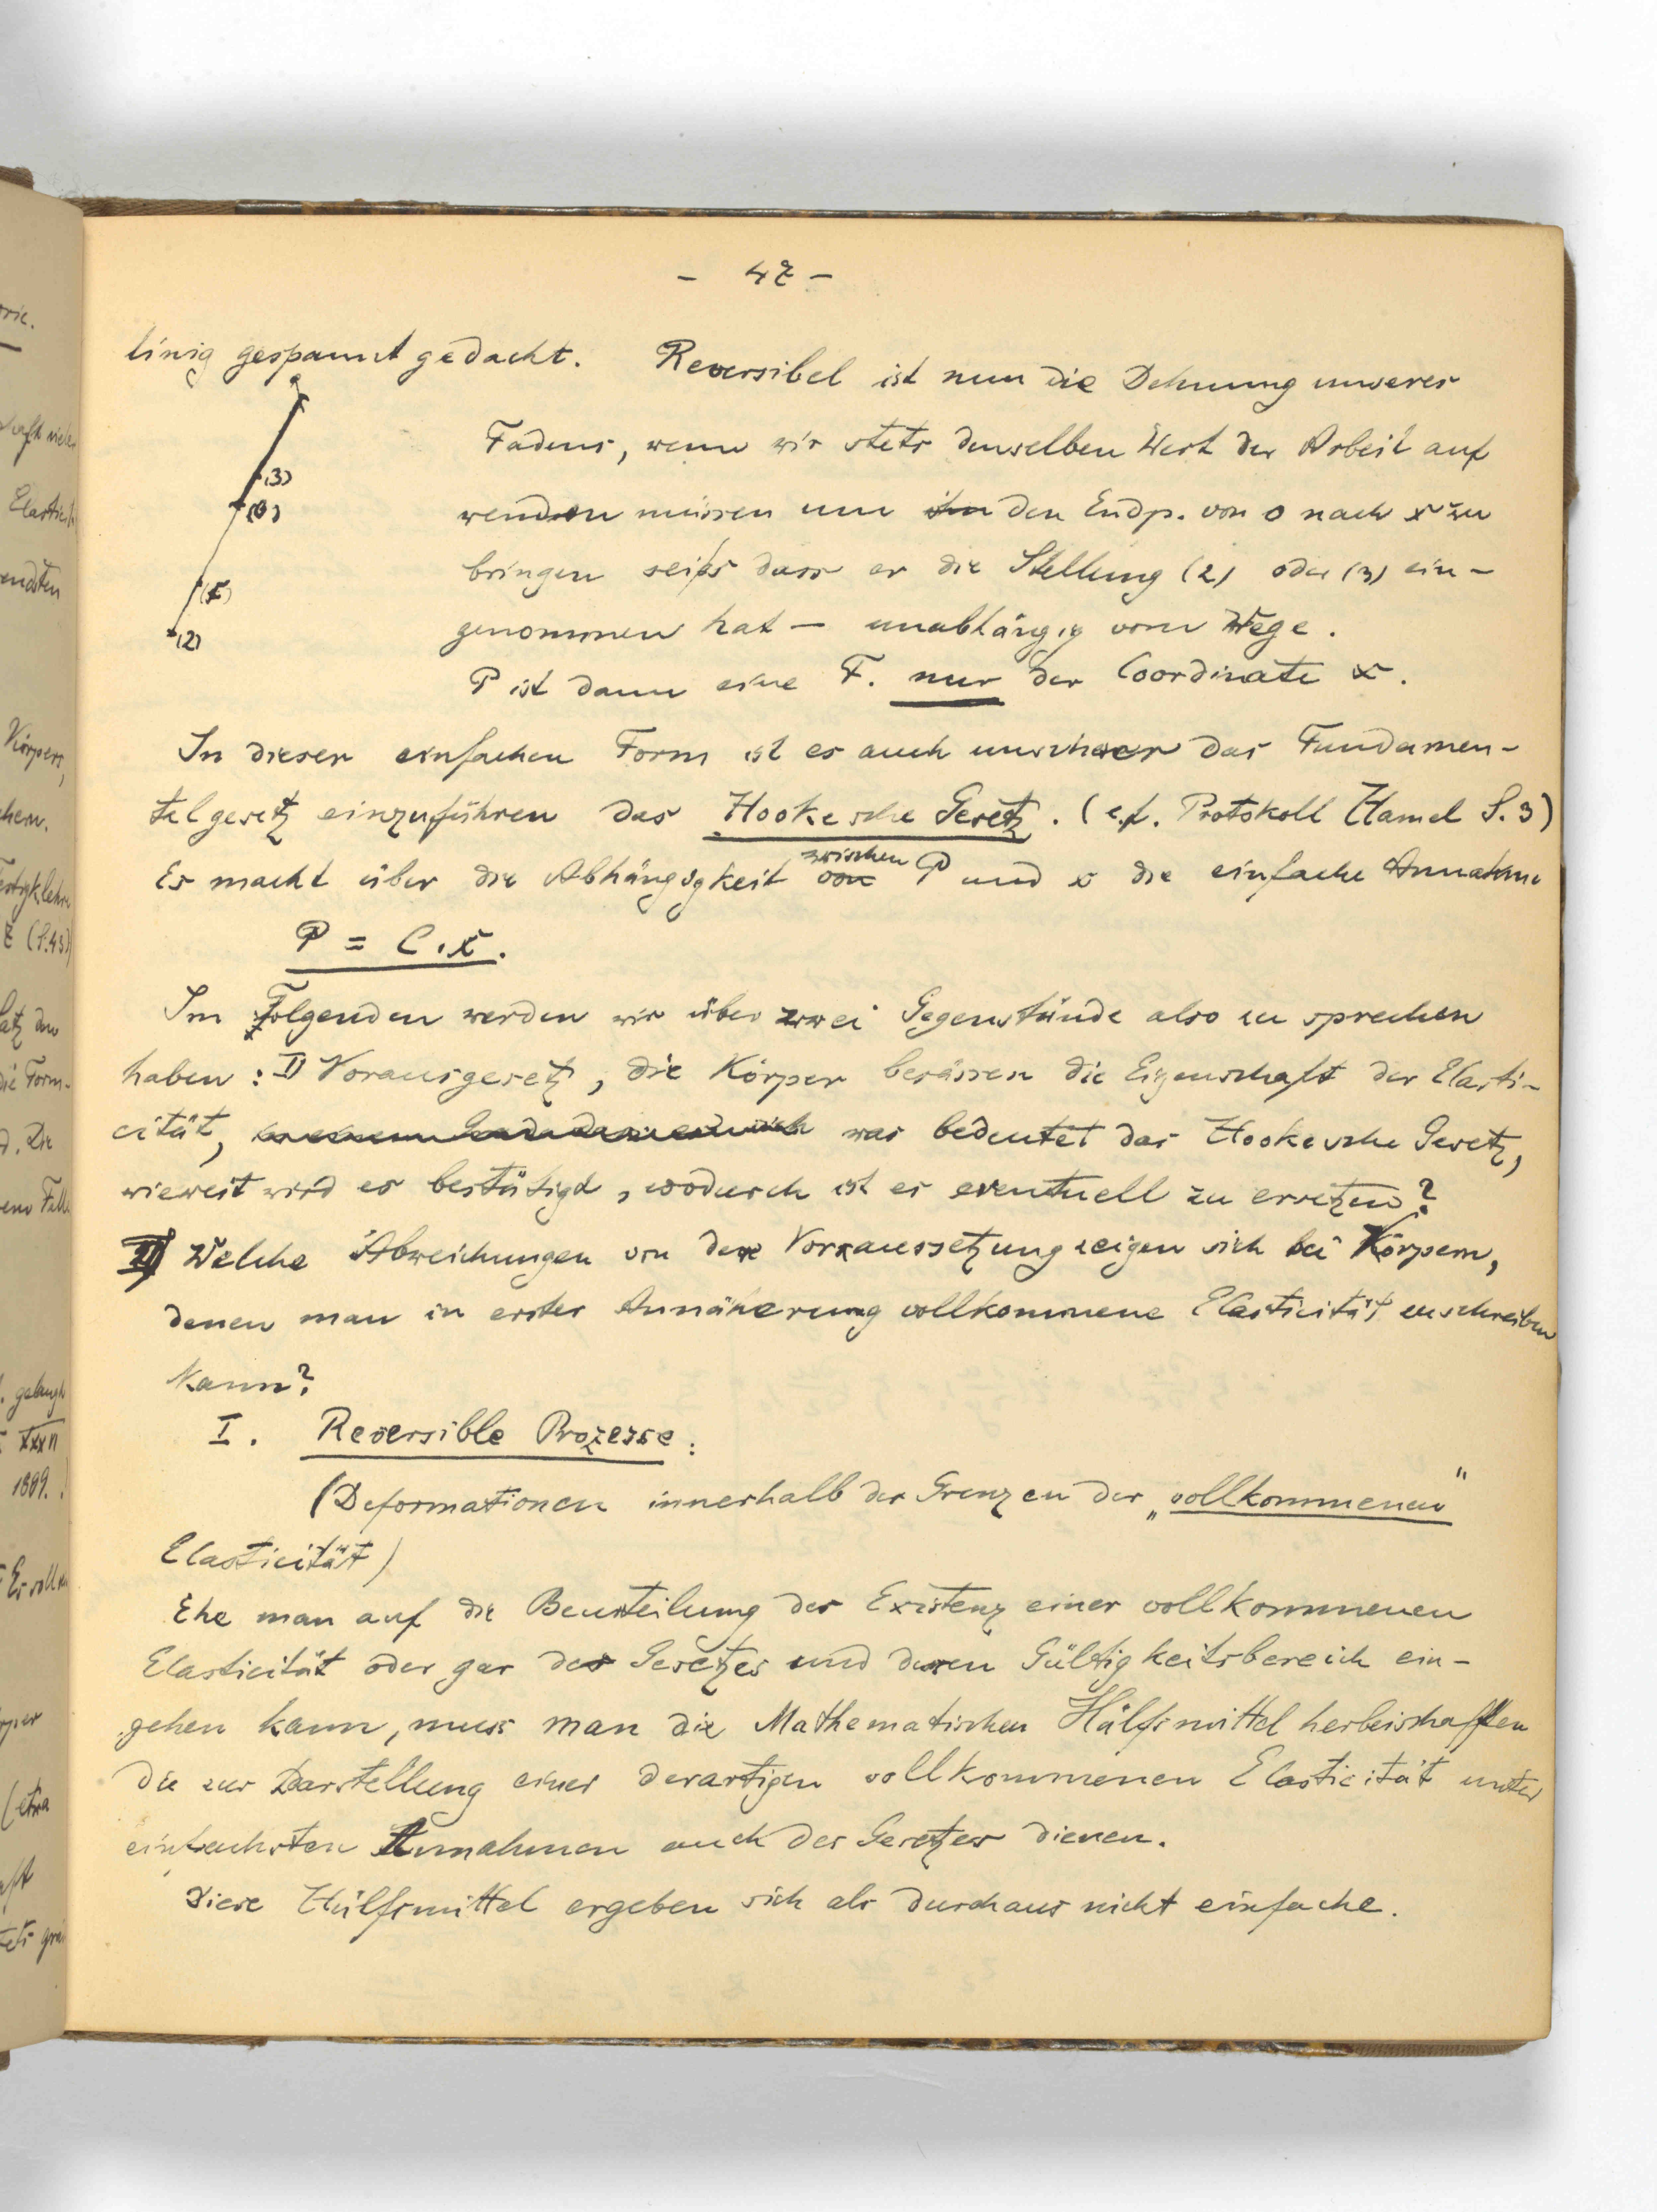 - 47 -
linig gespannt gedacht. Reversibel ist nun die Dehnung unseres
Fadens, wenn wir stets denselben Wert der Arbeit auf
wenden müssen um den Endp. von 0 nach x zu
bringen sei's dass er die Stellung (2) oder (3) ein-
genommen hat — unabhängig vom Wege.
P ist dann eine F. nur der Coordinate x.
(3)
(0)
(x)
(2)
In dieser einfachen Form ist es auch unschwer das Fundamen-
talgesetz einzuführen das Hookesche Gesetz. (c.f. Protokoll Hamel S. 3)
Es macht über die Abhängigkeit zwischen P und x die einfache Annahme
P = C.x.
Im Folgenden werden wir über zwei Gegenstände also zu sprechen
haben: I) Vorausgesetzt, die Körper besässen die Eigenschaft der Elasti-
cität, was bedeutet das Hookesche Gesetz,
wieweit wird es bestätigt, wodurch ist es eventuell zu ersetzen?
II) Welche Abweichungen von der Vorraussetzung zeigen sich bei Körpern,
denen man in erster Annäherung vollkommene Elasticität zuschreiben
kann?
I. Reversible Prozesse:
(Deformationen innerhalb der Grenzen der „vollkommenen"
Elasticität)
Ehe man auf die Beurteilung der Existenz einer vollkommenen
Elasticität oder gar des Gesetzes und deren Gültigkeitsbereich ein-
gehen kann, muss man die Mathematischen Hülfsmittel herbeischaffen
die zur Darstellung einer derartigen vollkommenen Elasticität unter
einfachsten Annahmen auch des Gesetzes dienen.
Diese Hülfsmittel ergeben sich als durchaus nicht einfache.